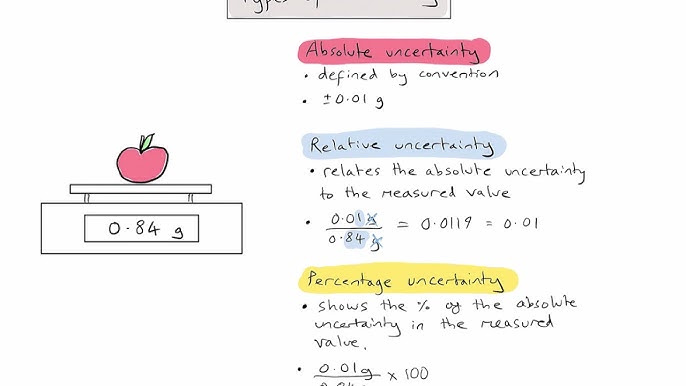 Types of
Absolute uncertainty
• defined by convention
• ±0.01 g
0.84 g
Relative uncertainty
• relates the absolute uncertainty
to the measured value
• 0.01 g / 0.84 g = 0.0119 = 0.01
Percentage uncertainty
• shows the % of the absolute
uncertainty in the measured
value.
• 0.01g / 0.84g × 100